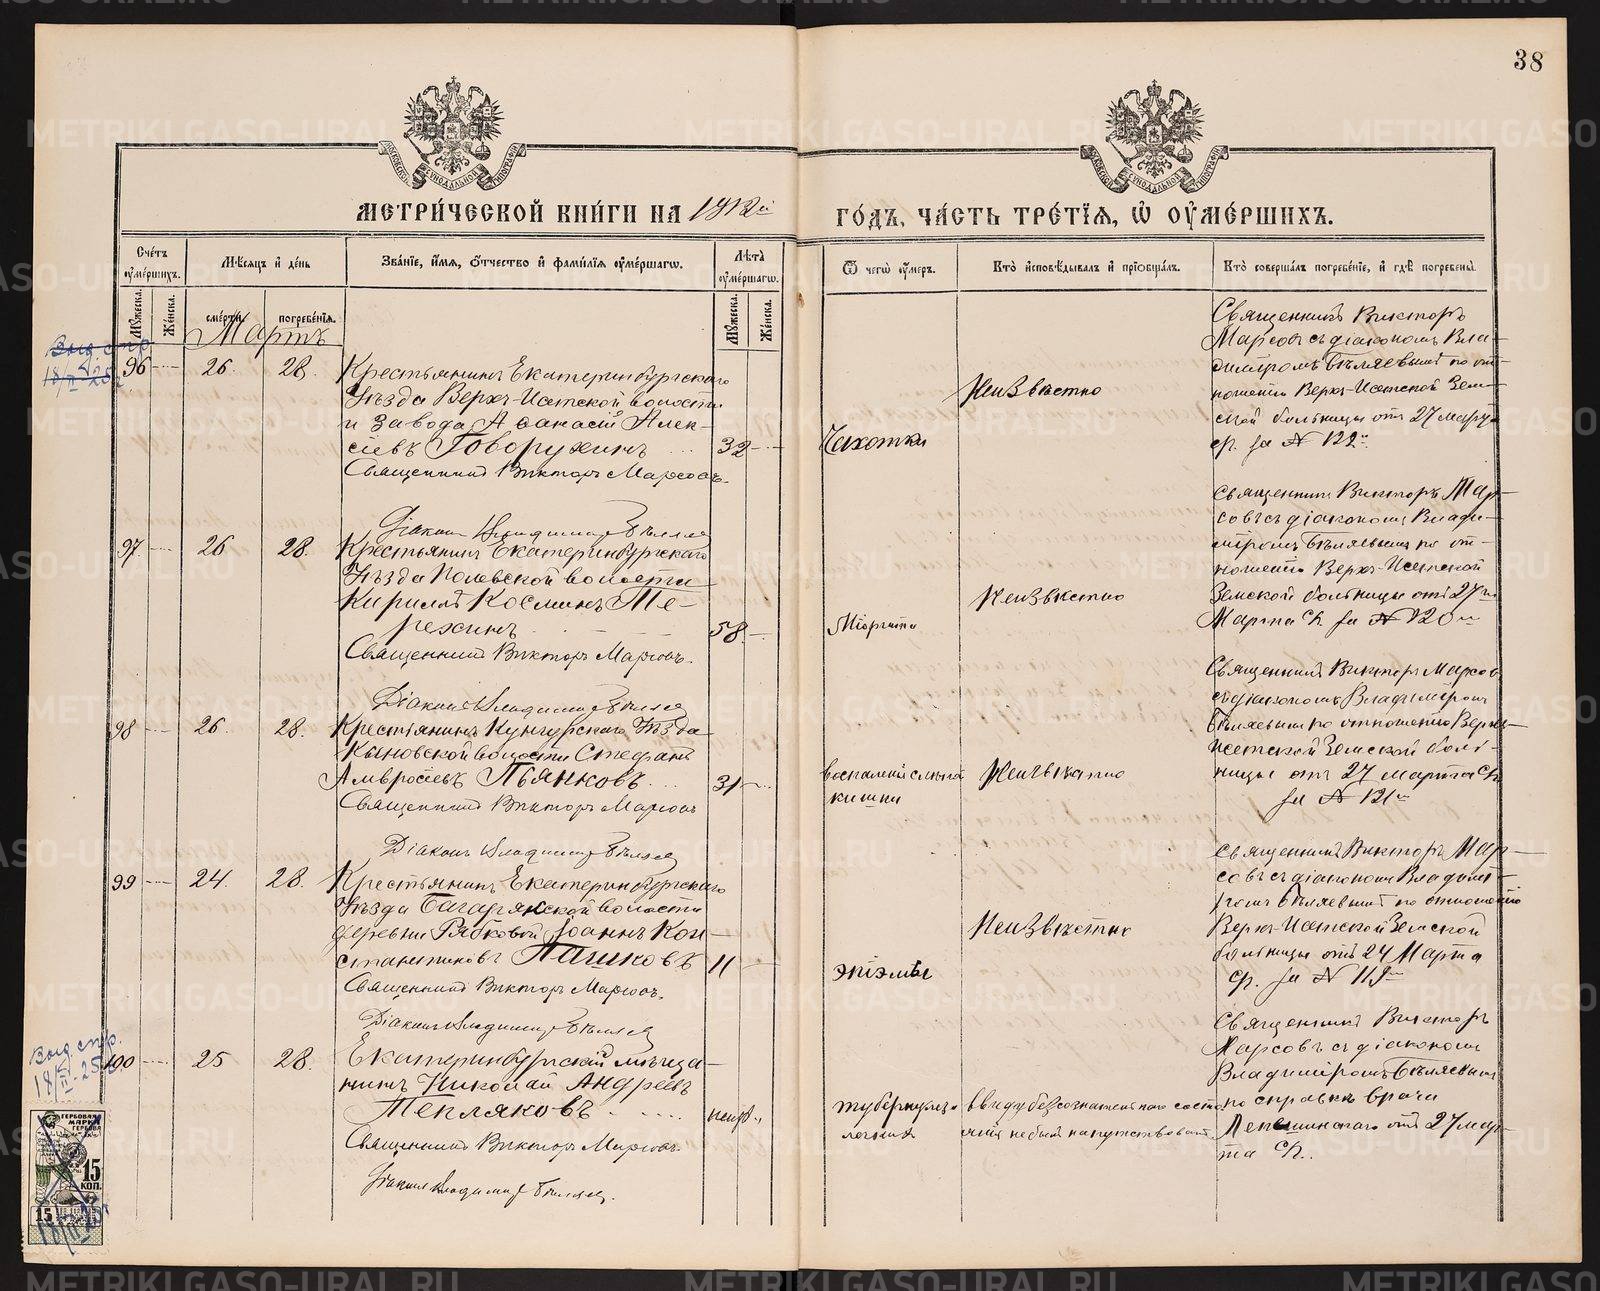 38
МЕТРИ́ЧЕСКОЙ КНИ́ГИ НА 1912й ГО́ДЪ, ЧА́СТЬ ТРЕ́ТІЯ, Ѿ ОУМЕ́РШИХЪ.
Сче́тъ оуме́ршихъ.
Мѣ́сяцъ и де́нь
Зва́ніе, и́мя, о́тчество и фами́лія оуме́ршагѡ.
Лѣ́та оуме́ршагѡ.
Ѿ чегѡ̀ оу́меръ.
Кто̀ исповѣ́дывалъ и пріобща́лъ.
Кто̀ соверша́лъ погребе́ніе, и гдѣ̀ погребены̀.
Му́жеска.
Же́нска.
сме́рти.
погребе́нія.
Му́жеска.
Же́нска.
Мартъ
Выд. спр.
18/II-25
96
26.
28.
Крестьянинъ Екатеринбургскаго
Уѣзда Верхъ-Исетской волости
и завода Аѳанасій Алек-
сіевъ Говорухинъ
32
Священникъ Викторъ Марсовъ.
Діаконъ Владимиръ Бѣляев
Чахотки
Неизвѣстно
Священникъ Викторъ
Марсовъ съ діакономъ Вла-
диміромъ Бѣляевымъ по от-
ношенію Верхъ-Исетской Зем-
ской больницы отъ 27 марта
ср. за № 122
97
26
28.
Крестьянинъ Екатеринбургскаго
Уѣзда Полевской волости
Кириллъ Косминъ Те-
рехинъ
58.
Священникъ Викторъ Марсовъ.
Діаконъ Владимиръ Бѣляев
Неизвѣстно
Священникъ Викторъ Мар-
совъ съ діакономъ Влади-
міромъ Бѣляевымъ по от-
ношенію Верхъ-Исетской
Земской больницы отъ 27го
Марта ср. за № 120
98
26.
28.
Крестьянинъ Кунгурскаго Уѣзда
Кыновской волости Стефанъ
Амвросіевъ Пьянковъ
31
Священникъ Викторъ Марсовъ
Діаконъ Владимиръ Бѣляев
воспаленія слѣпой
кишки
Неизвѣстно
Священникъ Викторъ Марсов
съ діакономъ Владиміромъ
Бѣляевымъ по отношенію Верхъ-
Исетской Земской боль-
ницы отъ 27 марта ср.
за № 121
99
24.
28.
Крестьянинъ Екатеринбургскаго
Уѣзда Багарякской волости
деревни Рябковой Іоаннъ Кон-
стантиновъ Пашковъ
11
Священникъ Викторъ Марсовъ.
Діаконъ Владимиръ Бѣляев
Неизвѣстно
Священникъ Викторъ Мар-
совъ съ діакономъ Владимі-
ромъ Бѣляевымъ по отношенію
Верхъ-Исетской Земской
больницы отъ 24 Марта
ср. за № 119
Выд. спр.
18/II-25
100
25
28.
Екатеринбургскій мѣща-
нинъ Николай Андреевъ
Тепляковъ
Священникъ Викторъ Марсовъ.
Діаконъ Владимиръ Бѣляев.
туберкулеза
легкихъ
ввиду безсознательнаго состо-
янія не былъ напутствованъ.
Священникъ Викторъ
Марсовъ съ діакономъ
Владиміромъ Бѣляевымъ
по справкѣ врача
Лепешинскаго отъ 27 мар-
та ср.
ГЕРБОВАЯ
МАРКА
15
КОП.
15
18/II-25